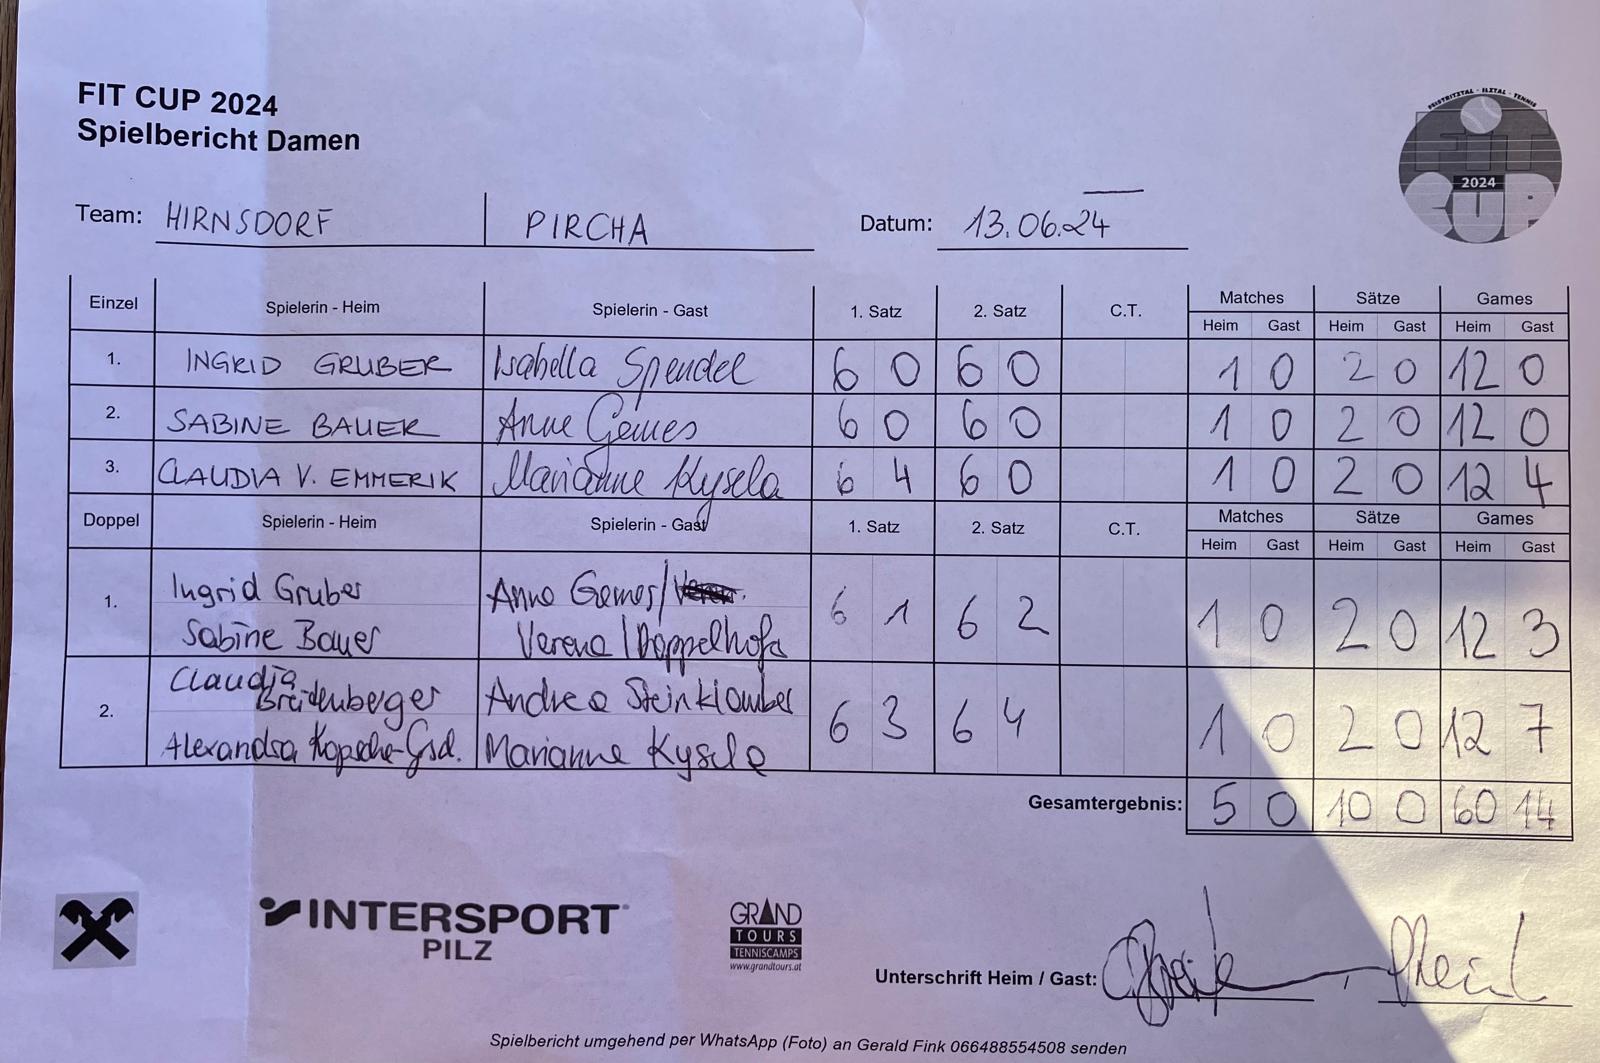 FIT CUP 2024
Spielbericht Damen
FEISTRITZTAL - ILZTAL - TENNIS
FIT
2024
CUP
Team: HIRNSDORF PIRCHA Datum: 13.06.24
Einzel Spielerin - Heim Spielerin - Gast 1. Satz 2. Satz C.T. Matches Sätze Games
Heim Gast Heim Gast Heim Gast
1. INGRID GRUBER Isabella Spendel 6 0 6 0 1 0 2 0 12 0
2. SABINE BAUER Anne Gemes 6 0 6 0 1 0 2 0 12 0
3. CLAUDIA V. EMMERIK Marianne Kysela 6 4 6 0 1 0 2 0 12 4
Doppel Spielerin - Heim Spielerin - Gast 1. Satz 2. Satz C.T. Matches Sätze Games
Heim Gast Heim Gast Heim Gast
1. Ingrid Gruber Anne Gemes/ 6 1 6 2 1 0 2 0 12 3
Sabine Bauer Verena Doppelhofer
2. Claudia Breidenberger Andrea Steinklauber 6 3 6 4 1 0 2 0 12 7
Alexandra Marianne Kysela
Gesamtergebnis: 5 0 10 0 60 14
INTERSPORT
PILZ
GRAND
TOURS
TENNISCAMPS
www.grandtours.at
Unterschrift Heim / Gast:
Spielbericht umgehend per WhatsApp (Foto) an Gerald Fink 066488554508 senden